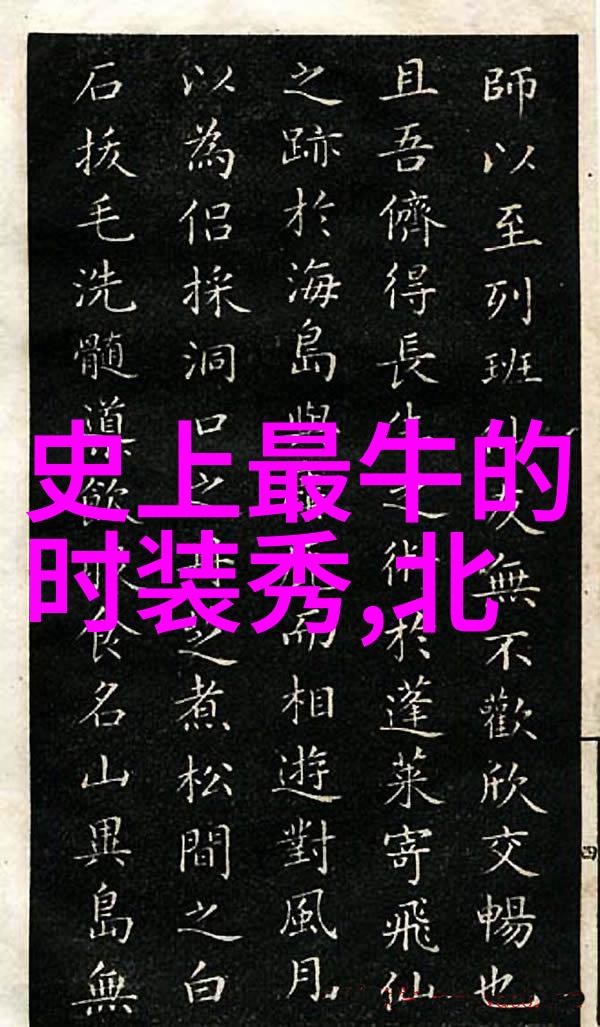 史上最牛的
时装秀,北
師以至列班仙友無不歡欣交暢也
且吾儕得長生之術於蓬萊寄飛仙
之跡於海島與而相遊對風月
以為侶採洞口之之煮松間之白
石拔毛洗髓導飲食名山異島無
四